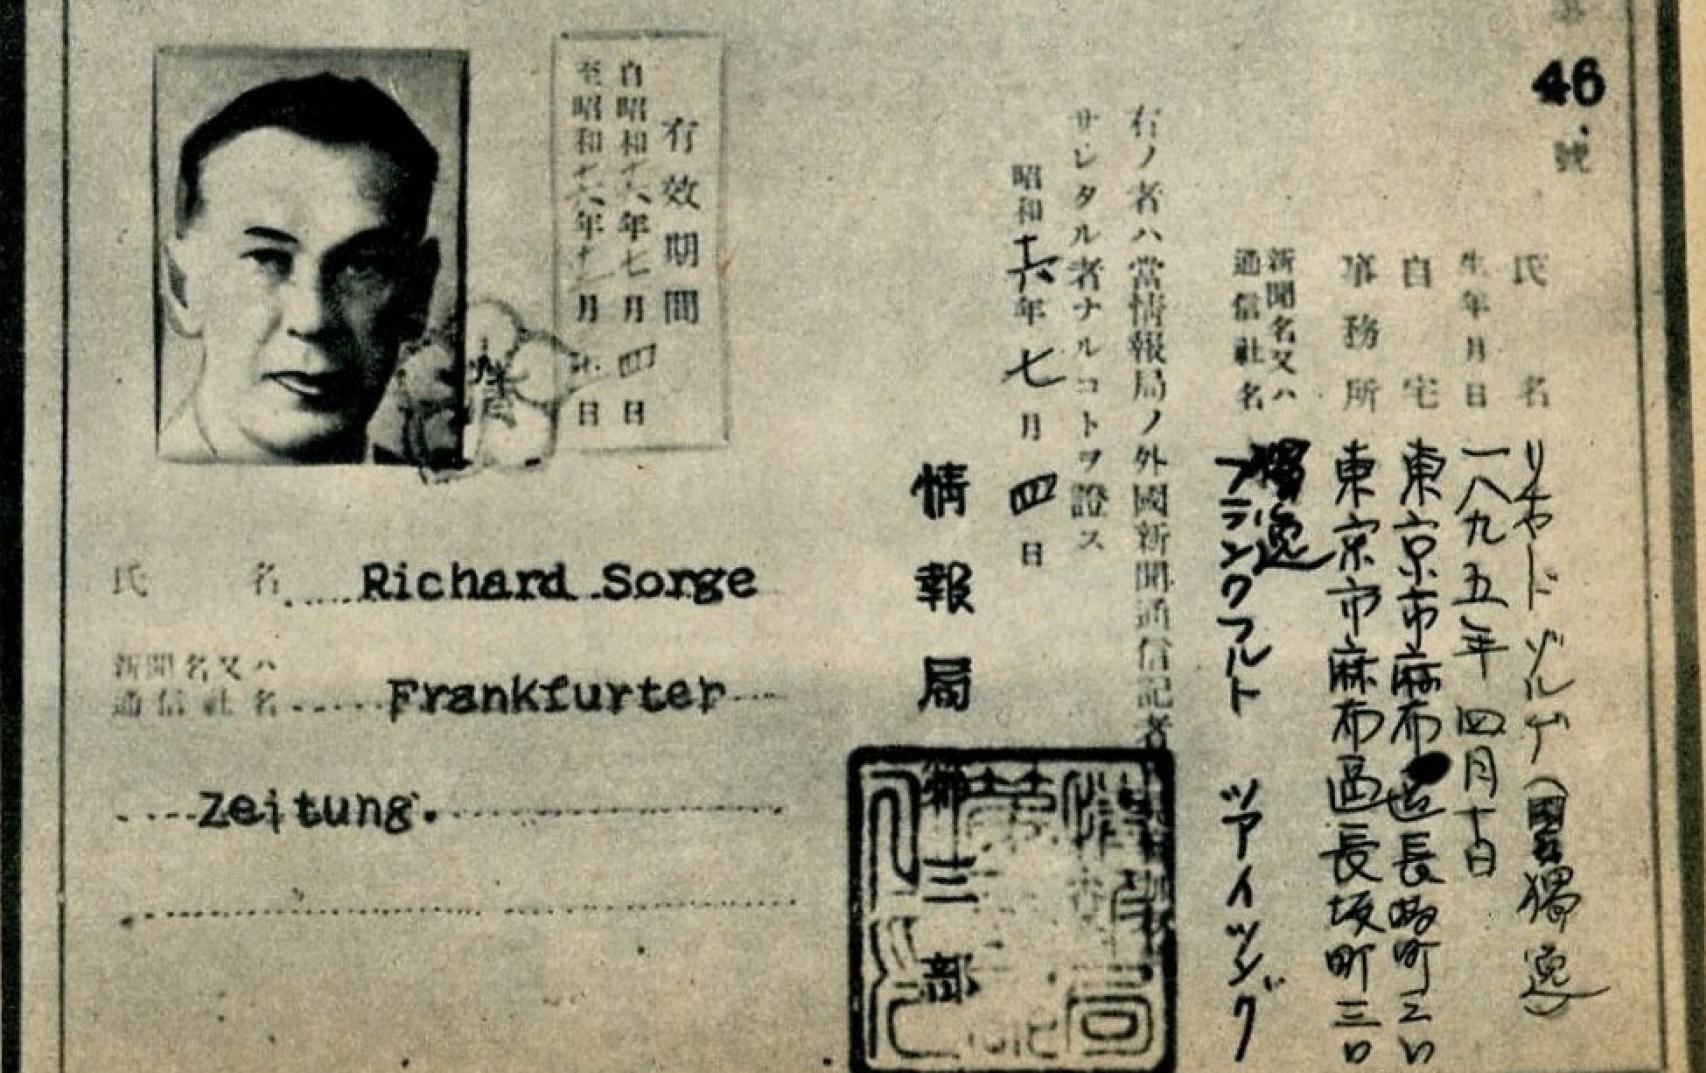 46
號
氏名 リヒヤード ゾルゲ（國名 獨逸）
生年月日 一八九五年四月十日
自宅 東京市麻布區長坂町三
事務所 東京市麻布區長坂町三
新聞名又ハ 獨逸
通信社名 フランクフルト ツアイツング
右ノ者ハ當情報局ノ外國新聞通信記者
サレタル者ナルコトヲ證ス
昭和十六年七月四日
情報局
第三部
有效期間
自昭和十六年七月四日
至昭和十六年十二月 日
情
氏名 Richard Sorge
新聞名又ハ
通信社名 Frankfurter
Zeitung.